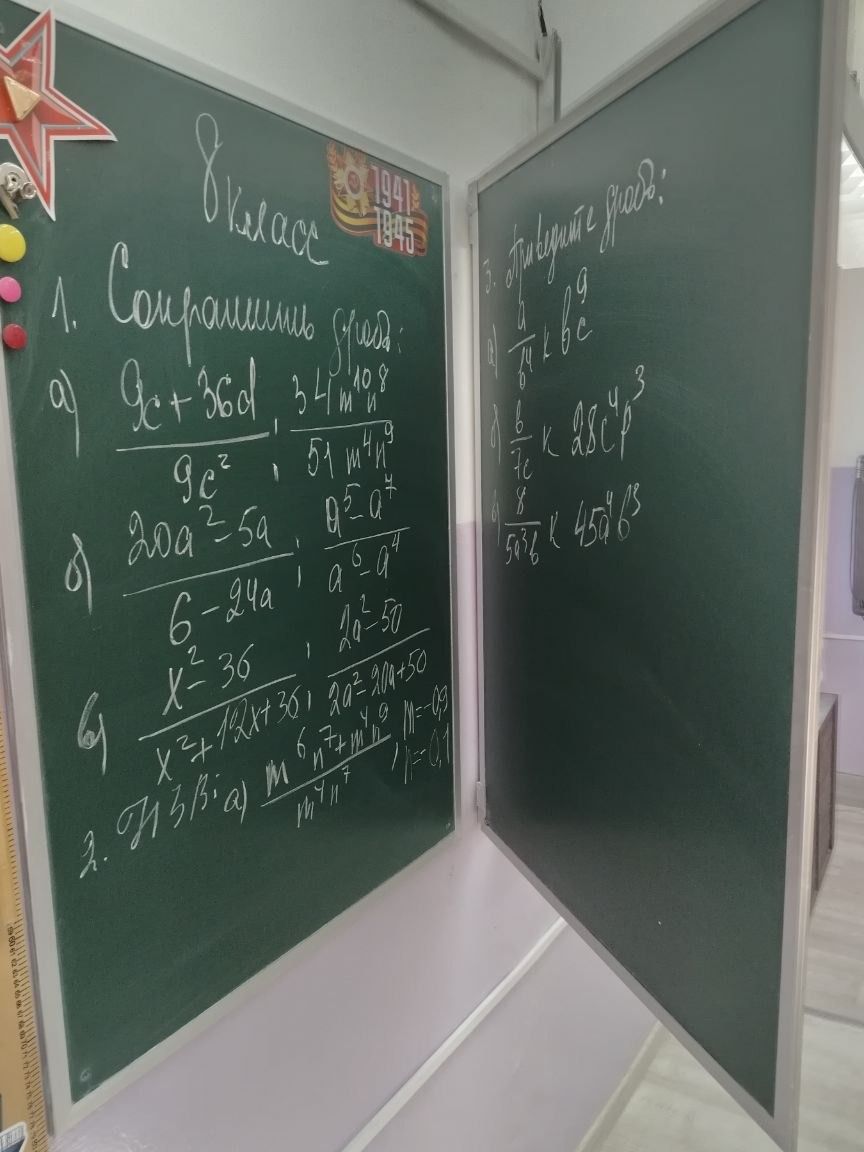 8 класс
1941
1945
1. Сократить дробь:
а) (9c + 36d)/(9c²) ; (34m¹⁰n⁸)/(51m⁴n⁹)
б) (20a² - 5a)/(6 - 24a) ; (a⁵ - a⁷)/(a⁶ - a⁴)
в) (x² - 36)/(x² + 12x + 36) ; (2a² - 50)/(2a² - 20a + 50)
2. НЗВ: а) (m⁶n⁷ + m⁴n⁹)/(m⁴n⁷) , m = -0,9
n = -0,1
3. Приведите дробь:
а) a/b⁴ к bc⁹
б) b/7c к 28c⁴p³
в) 8/5a³b к 45a⁴b³